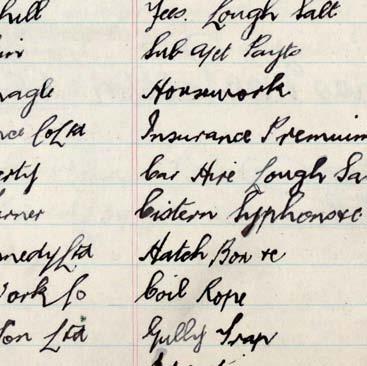 hill Fees. Lough Salt
Sub Agt Payts
nagle Housework
nce Co Ltd Insurance Premuim
erty Car Hire Lough Sa
urner Cistern Syphons &c
nedy Ltd Hatch Box re
Work Co Coil Rope
Son Ltd Gully Trap